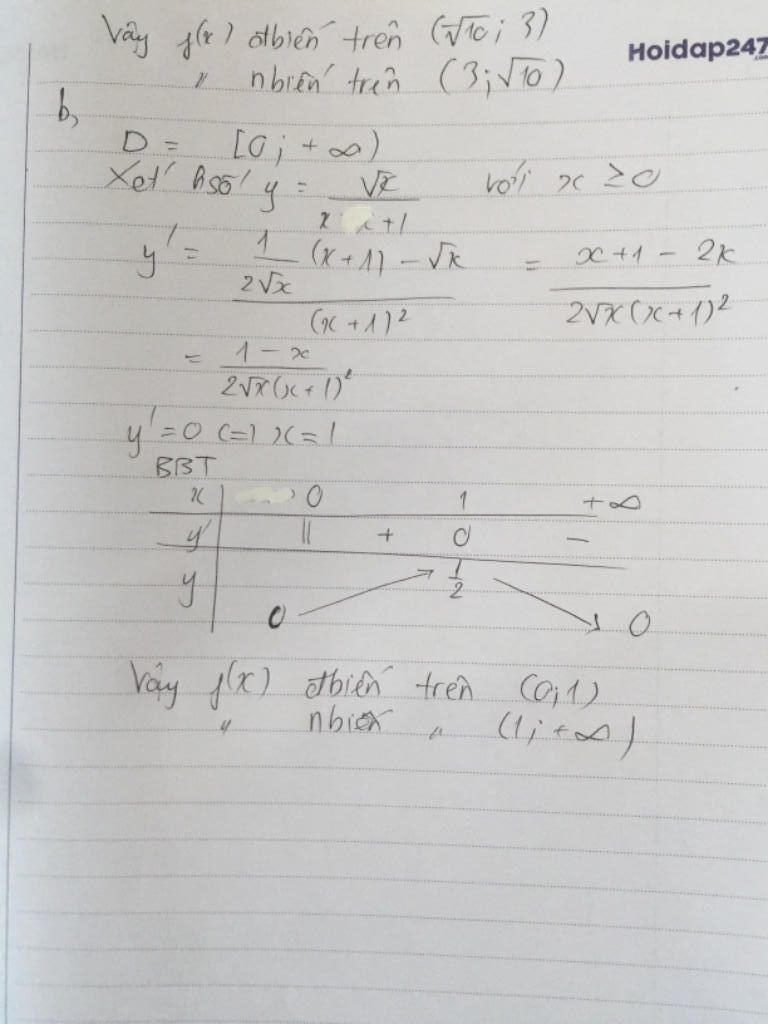 Vậy f(x) đbiến trên (√10; 3)
" nbiến trên (3; √10)
Hoidap247.com
b,
D = [0; +∞)
Xét hsố y = √x / (x+1) với x ≥ 0
y' = (1/(2√x) (x+1) - √x) / (x+1)² = (x+1 - 2x) / (2√x(x+1)²)
= (1-x) / (2√x(x+1)²)
y' = 0 <=> x = 1
BBT
x 0 1 +∞
y' || + 0 -
y 0 1/2 0
Vậy f(x) đbiến trên (0;1)
" nbiến " (1; +∞)